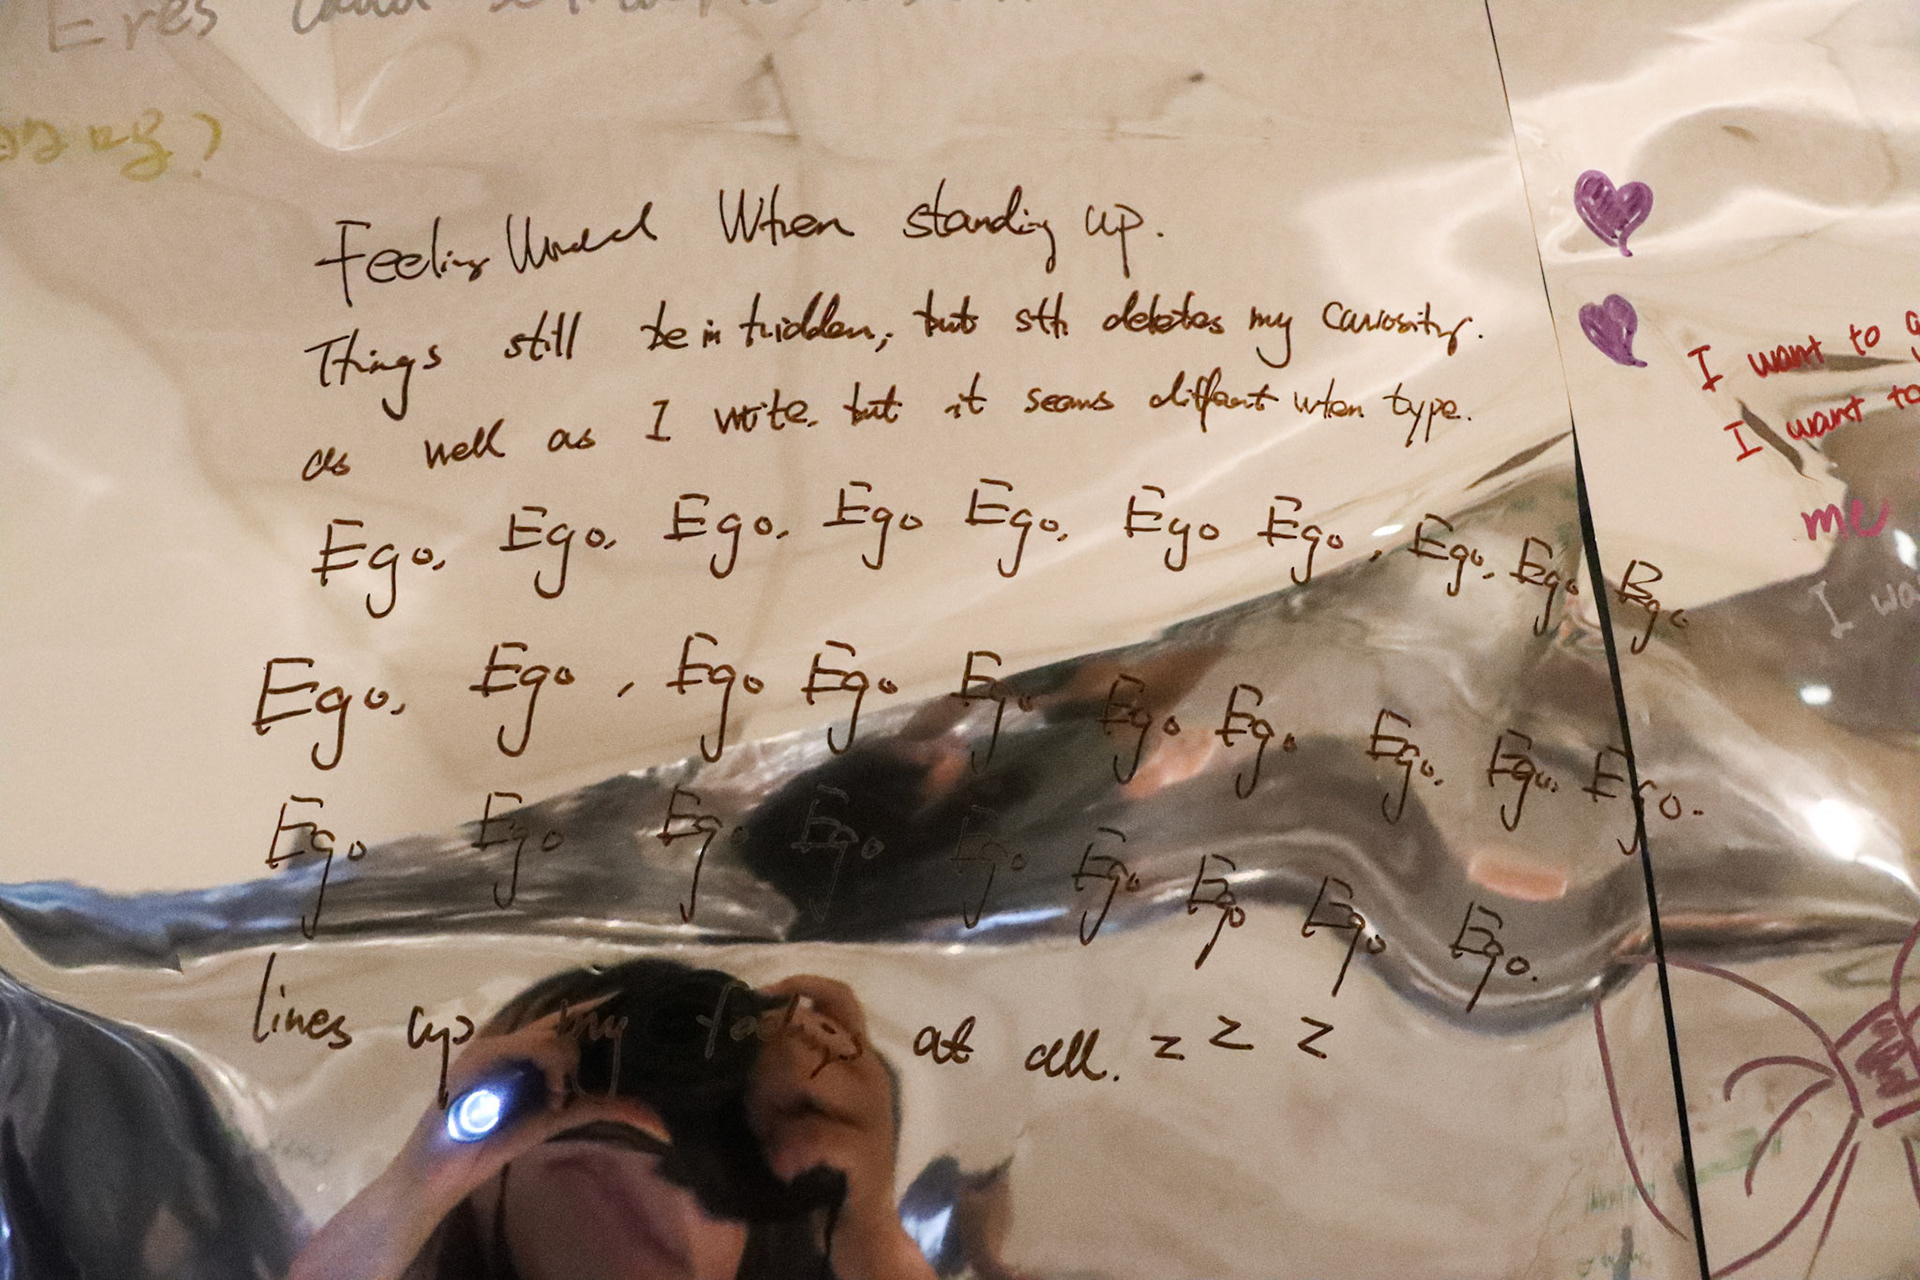 Eres
Feeling When standing up.
Things still be in hidden, but sth deletes my curiosity.
as well as I write. but it seems different when type.
Ego, Ego, Ego, Ego Ego, Ego Ego, Ego, Ego Ego
Ego, Ego, Ego Ego Ego Ego Ego Ego, Ego. Ego.
Ego Ego Ego Ego Ego Ego Ego Ego Ego.
lines up my at all. z z z
I want to
I want to
me
I wa